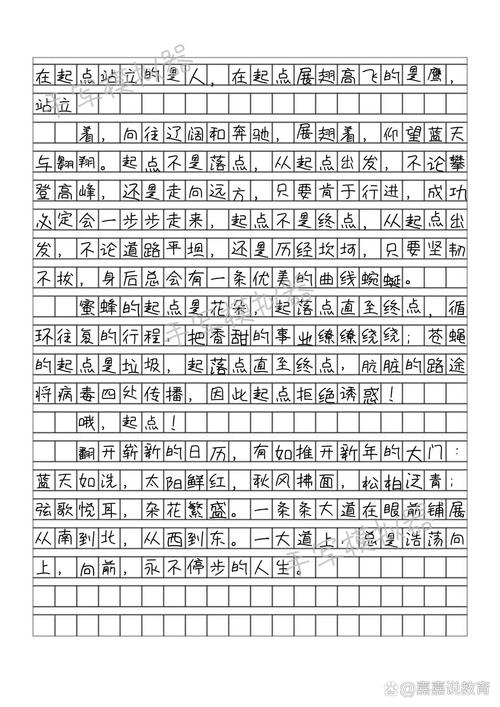 在起点站立的是人，在起点展翅高飞的是鹰，
站立
着，向往辽阔和奔驰，展翅着，仰望蓝天
与翱翔。起点不是落点，从起点出发，不论攀
登高峰，还是走向远方，只要肯于行进，成功
必定会一步步走来，起点不是终点，从起点出
发，不论道路平坦，还是历经坎坷，只要坚韧
不拔，身后总会有一条优美的曲线蜿蜒。
蜜蜂的起点是花朵，起落点直至终点，循
环往复的行程，把香甜的事业缭缭绕绕；苍蝇
的起点是垃圾，起落点直至终点，肮脏的路途
将病毒四处传播，因此起点拒绝诱惑！
哦，起点！
翻开崭新的日历，有如推开新年的大门：
蓝天如洗，太阳鲜红，秋风拂面，松柏泛青；
弦歌悦耳，杂花繁盛。一条条大道在眼前铺展
从南到北，从西到东。一大道上，总是浩荡向
上，向前，永不停步的人生。
手写模拟器
手写模拟器
手写模拟器
嘉嘉说教育